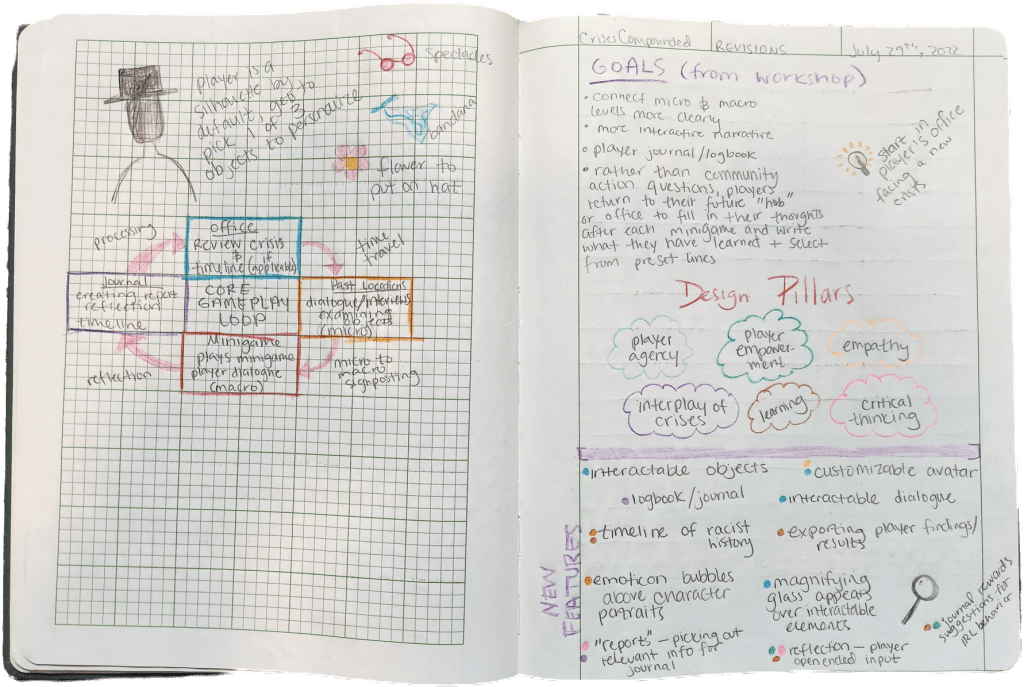 Player is a
silhouette by
default, gets to
pick 1 of 3
objects to personalize
Spectacles
bandana
flower to
put on hat
processing
office
Review crisis
&
timeline (if applicable)
time
travel
Journal
creating report
reflection
timeline
CORE
GAMEPLAY
LOOP
Past Locations
dialogue/interviews
examining
objects
(micros)
Minigame
plays minigame
player dialogue
(macro)
reflection
micro to
macro
signposting
Crises Compounded
REVISIONS
July 29th, 2022
GOALS (from workshop)
• connect micro & macro
levels more clearly
• more interactive narrative
• player journal/logbook
• rather than community
action questions, players
return to their future "hub"
or office to fill in their thoughts
after each minigame and write
what they have learned + select
from preset lines
start in
player's office
facing a new
crisis
Design Pillars
player
agency
player
empower-
ment
empathy
interplay of
crises
learning
critical
thinking
NEW
FEATURES
• interactable objects
• customizable avatar
• logbook/journal
• interactable dialogue
• timeline of racist
history
• exporting player findings/
results
• emoticon bubbles
above character
portraits
• magnifying
glass appears
over interactable
elements
• journal rewards
suggestions for
IRL behavior
• "reports" – picking out
relevant info for
journal
• reflection – player
open ended input